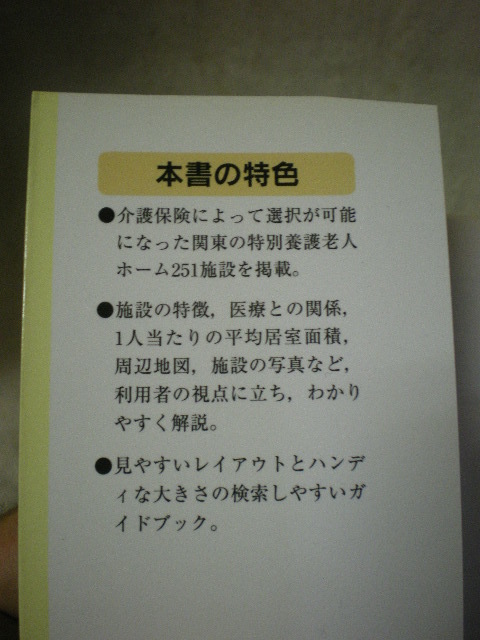 本書の特色
●介護保険によって選択が可能
になった関東の特別養護老人
ホーム251施設を掲載。
●施設の特徴，医療との関係，
1人当たりの平均居室面積，
周辺地図，施設の写真など，
利用者の視点に立ち，わかり
やすく解説。
●見やすいレイアウトとハンデ
ィな大きさの検索しやすいガ
イドブック。